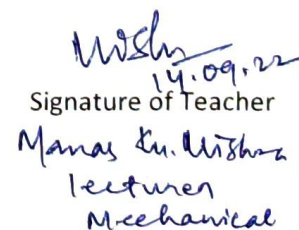 Mishra
14.09.22
Signature of Teacher
Manas Ku. Mishra
lecturer
Mechanical